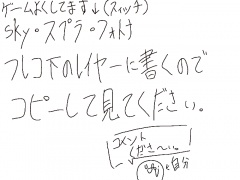 ゲームよくしてます↓(スイッチ)
sky・スプラ・フォトナ
フレコ下のレイヤーに書くので
コピーして見てください。
コメント
ください〜い。
←自分